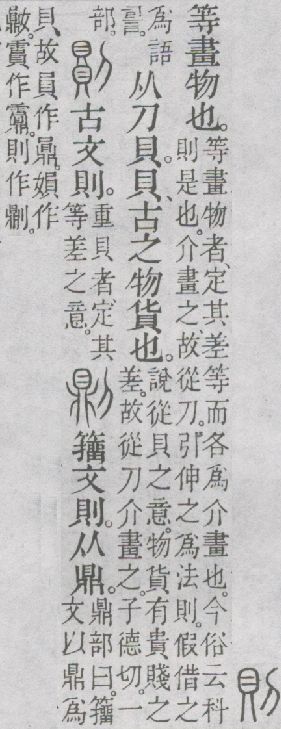 則
等畫物也。
等畫物者、定其差等而各爲介畫也。今俗云科
則是也。介畫之、故從刀。引伸之爲法則。假借之
爲語
䛐。
从刀貝。貝、古之物貨也。
說從貝之意。物貨有貴賤之
差。故從刀介畫之。子德切。一
部。
則 古文則。
重貝者、定其
等差之意。
𠟭 籒文則。从鼎。
鼎部曰。籒
文以鼎爲
貝、故員作𪔅、媜作
霣作 則作𠟭。